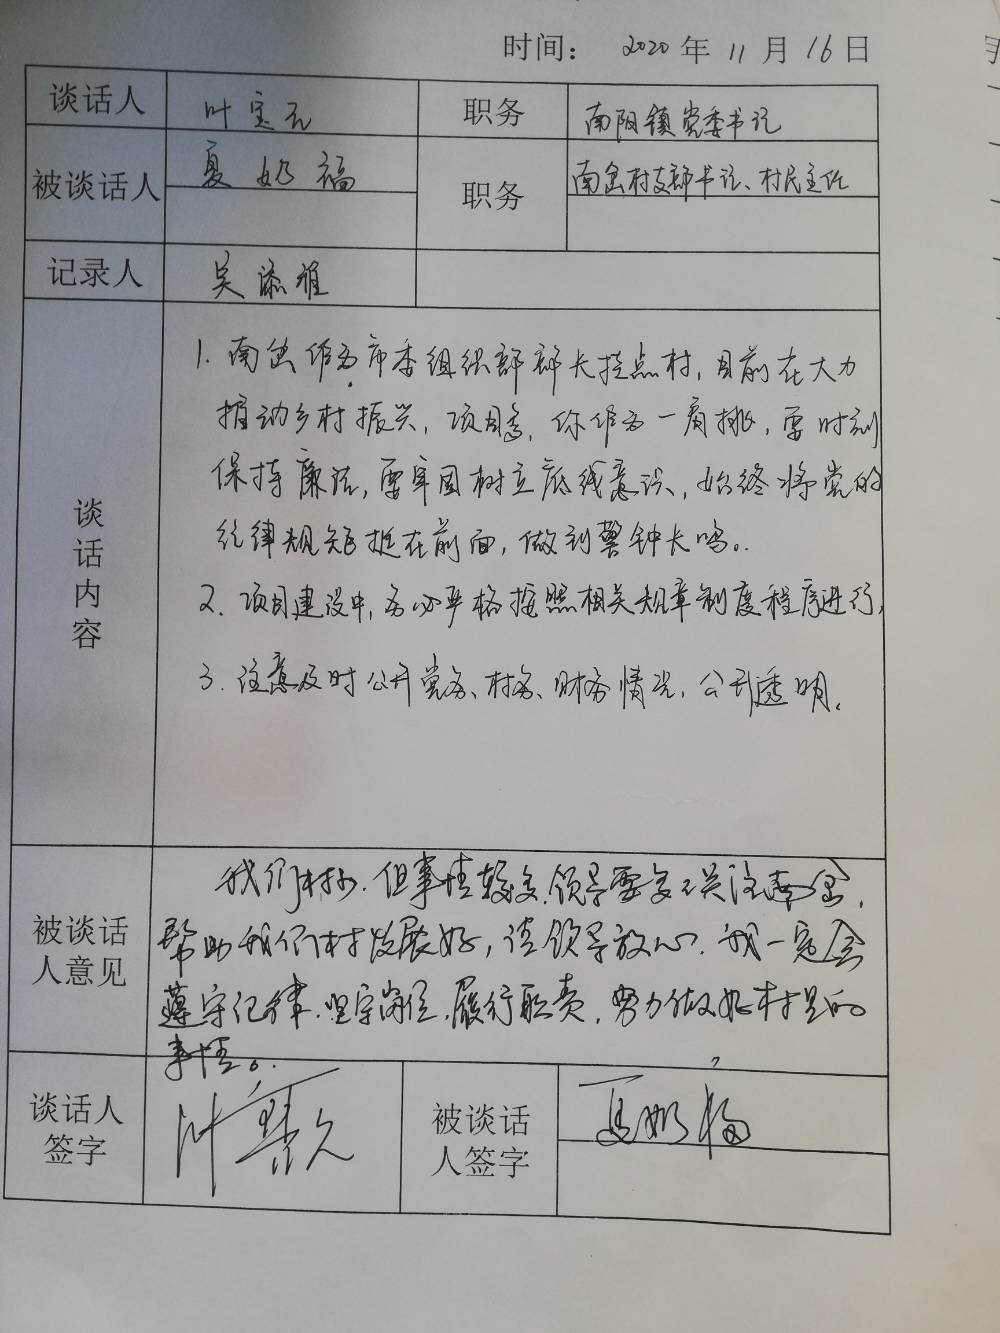 时间： 2020 年 11 月 16 日
谈话人 叶宝 职务 南阳镇党委书记
被谈话人 夏奶福 职务 南岔村支部书记、村民主任
记录人 吴添
1. 南岔作为市委组织部部长挂点村，目前在大力
推动乡村振兴，项目多，你作为一肩挑，要时刻
保持廉洁，要牢固树立底线意识，始终将党的
纪律规矩挺在前面，做到警钟长鸣。
谈话内容
2. 项目建设中，务必严格按照相关规章制度程序进行，
3. 注意及时公开党务、村务、财务情况，公开透明。
我们村小，但事情较多，领导要多关注南岔，
被谈话人意见
帮助我们村发展好，请领导放心，我一定会
遵守纪律，坚守岗位，履行职责，努力做好村里的
事情。
谈话人签字 叶宝
被谈话人签字 夏奶福